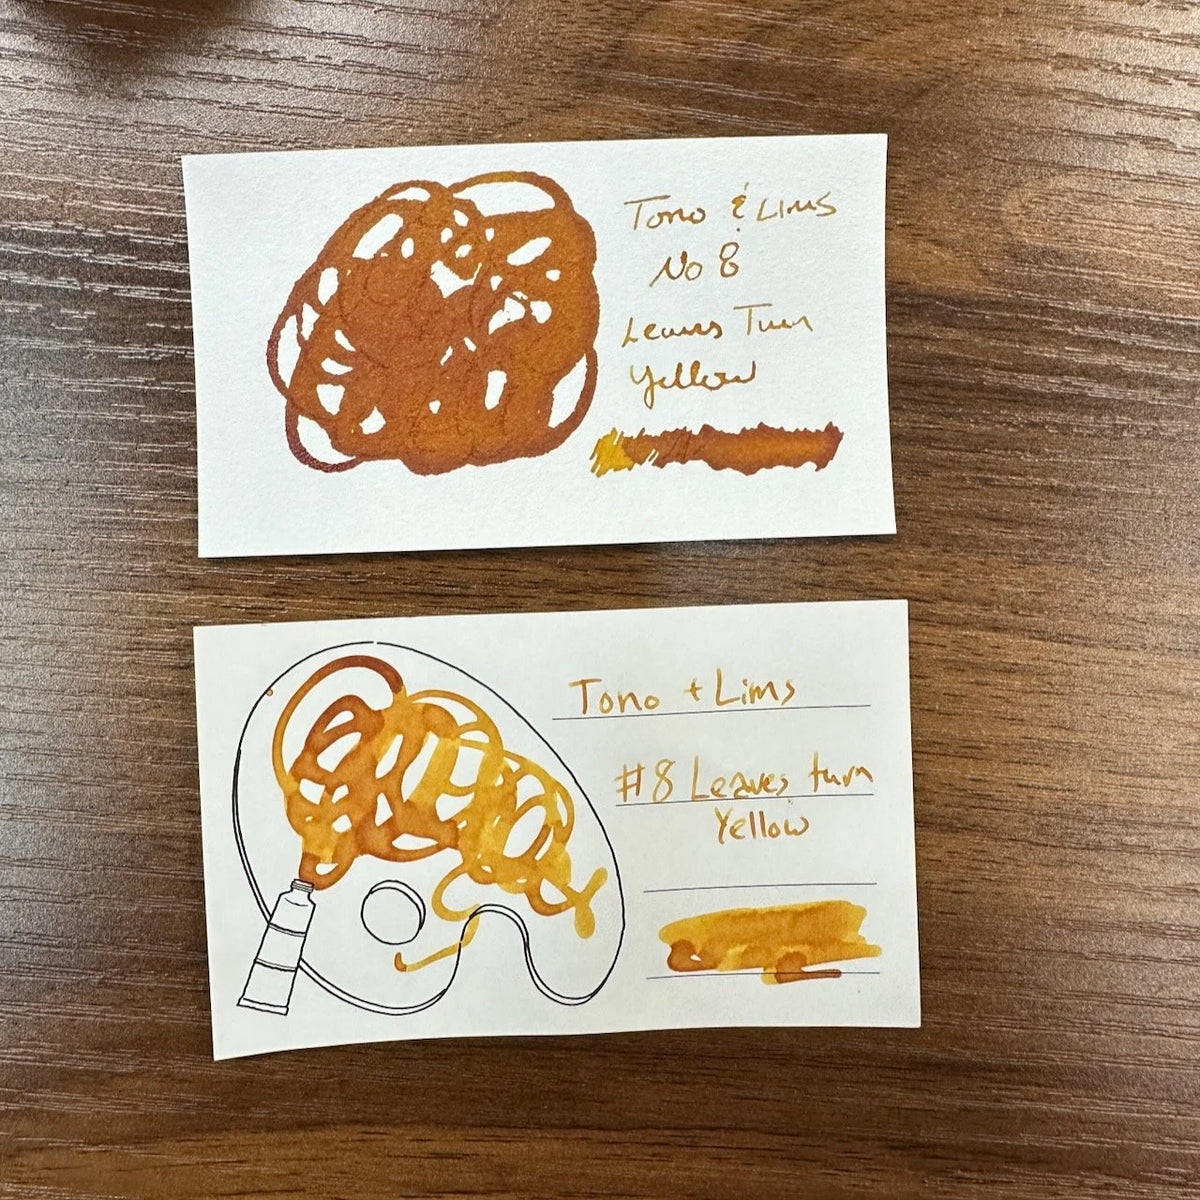 Tono & Lims
No 8
Leaves Turn
Yellow
Tono + Lims
#8 Leaves turn
Yellow